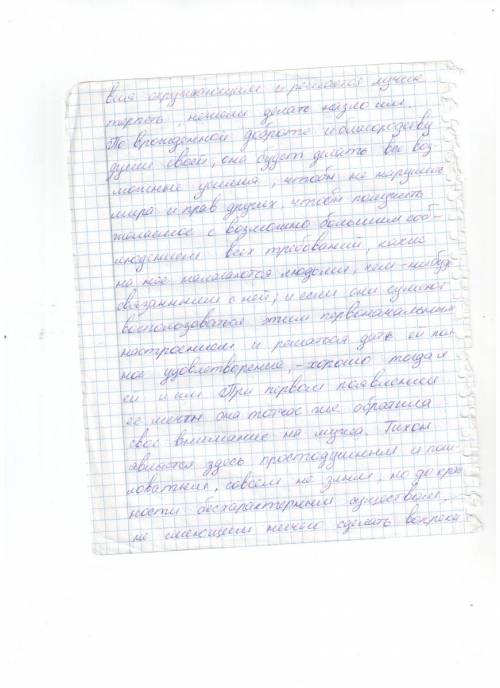 вия окружающим и решается лучше
терпеть, нежели делать назло им.
По врожденной доброте и благородству
души своей, она будет делать все воз
можные усилия, чтобы не нарушить
мира и прав других, чтобы получить
желаемое с возможно большим соб-
людением всех требований, какие
на нее налагаются людьми, чем-нибудь
связанными с ней; и если они сумеют
воспользоваться этим первоначальным
настроением и решатся дать ей пол
ное удовлетворение, - хорошо тогда и
ей и им. При первом появлении
ее мечты она тотчас же обратила
свое внимание на мужа. Тихон
является здесь простодушным и пош-
ловатым, совсем не злым, но до край
ности бесхарактерным существом,
не смеющим ничего сделать вопреки